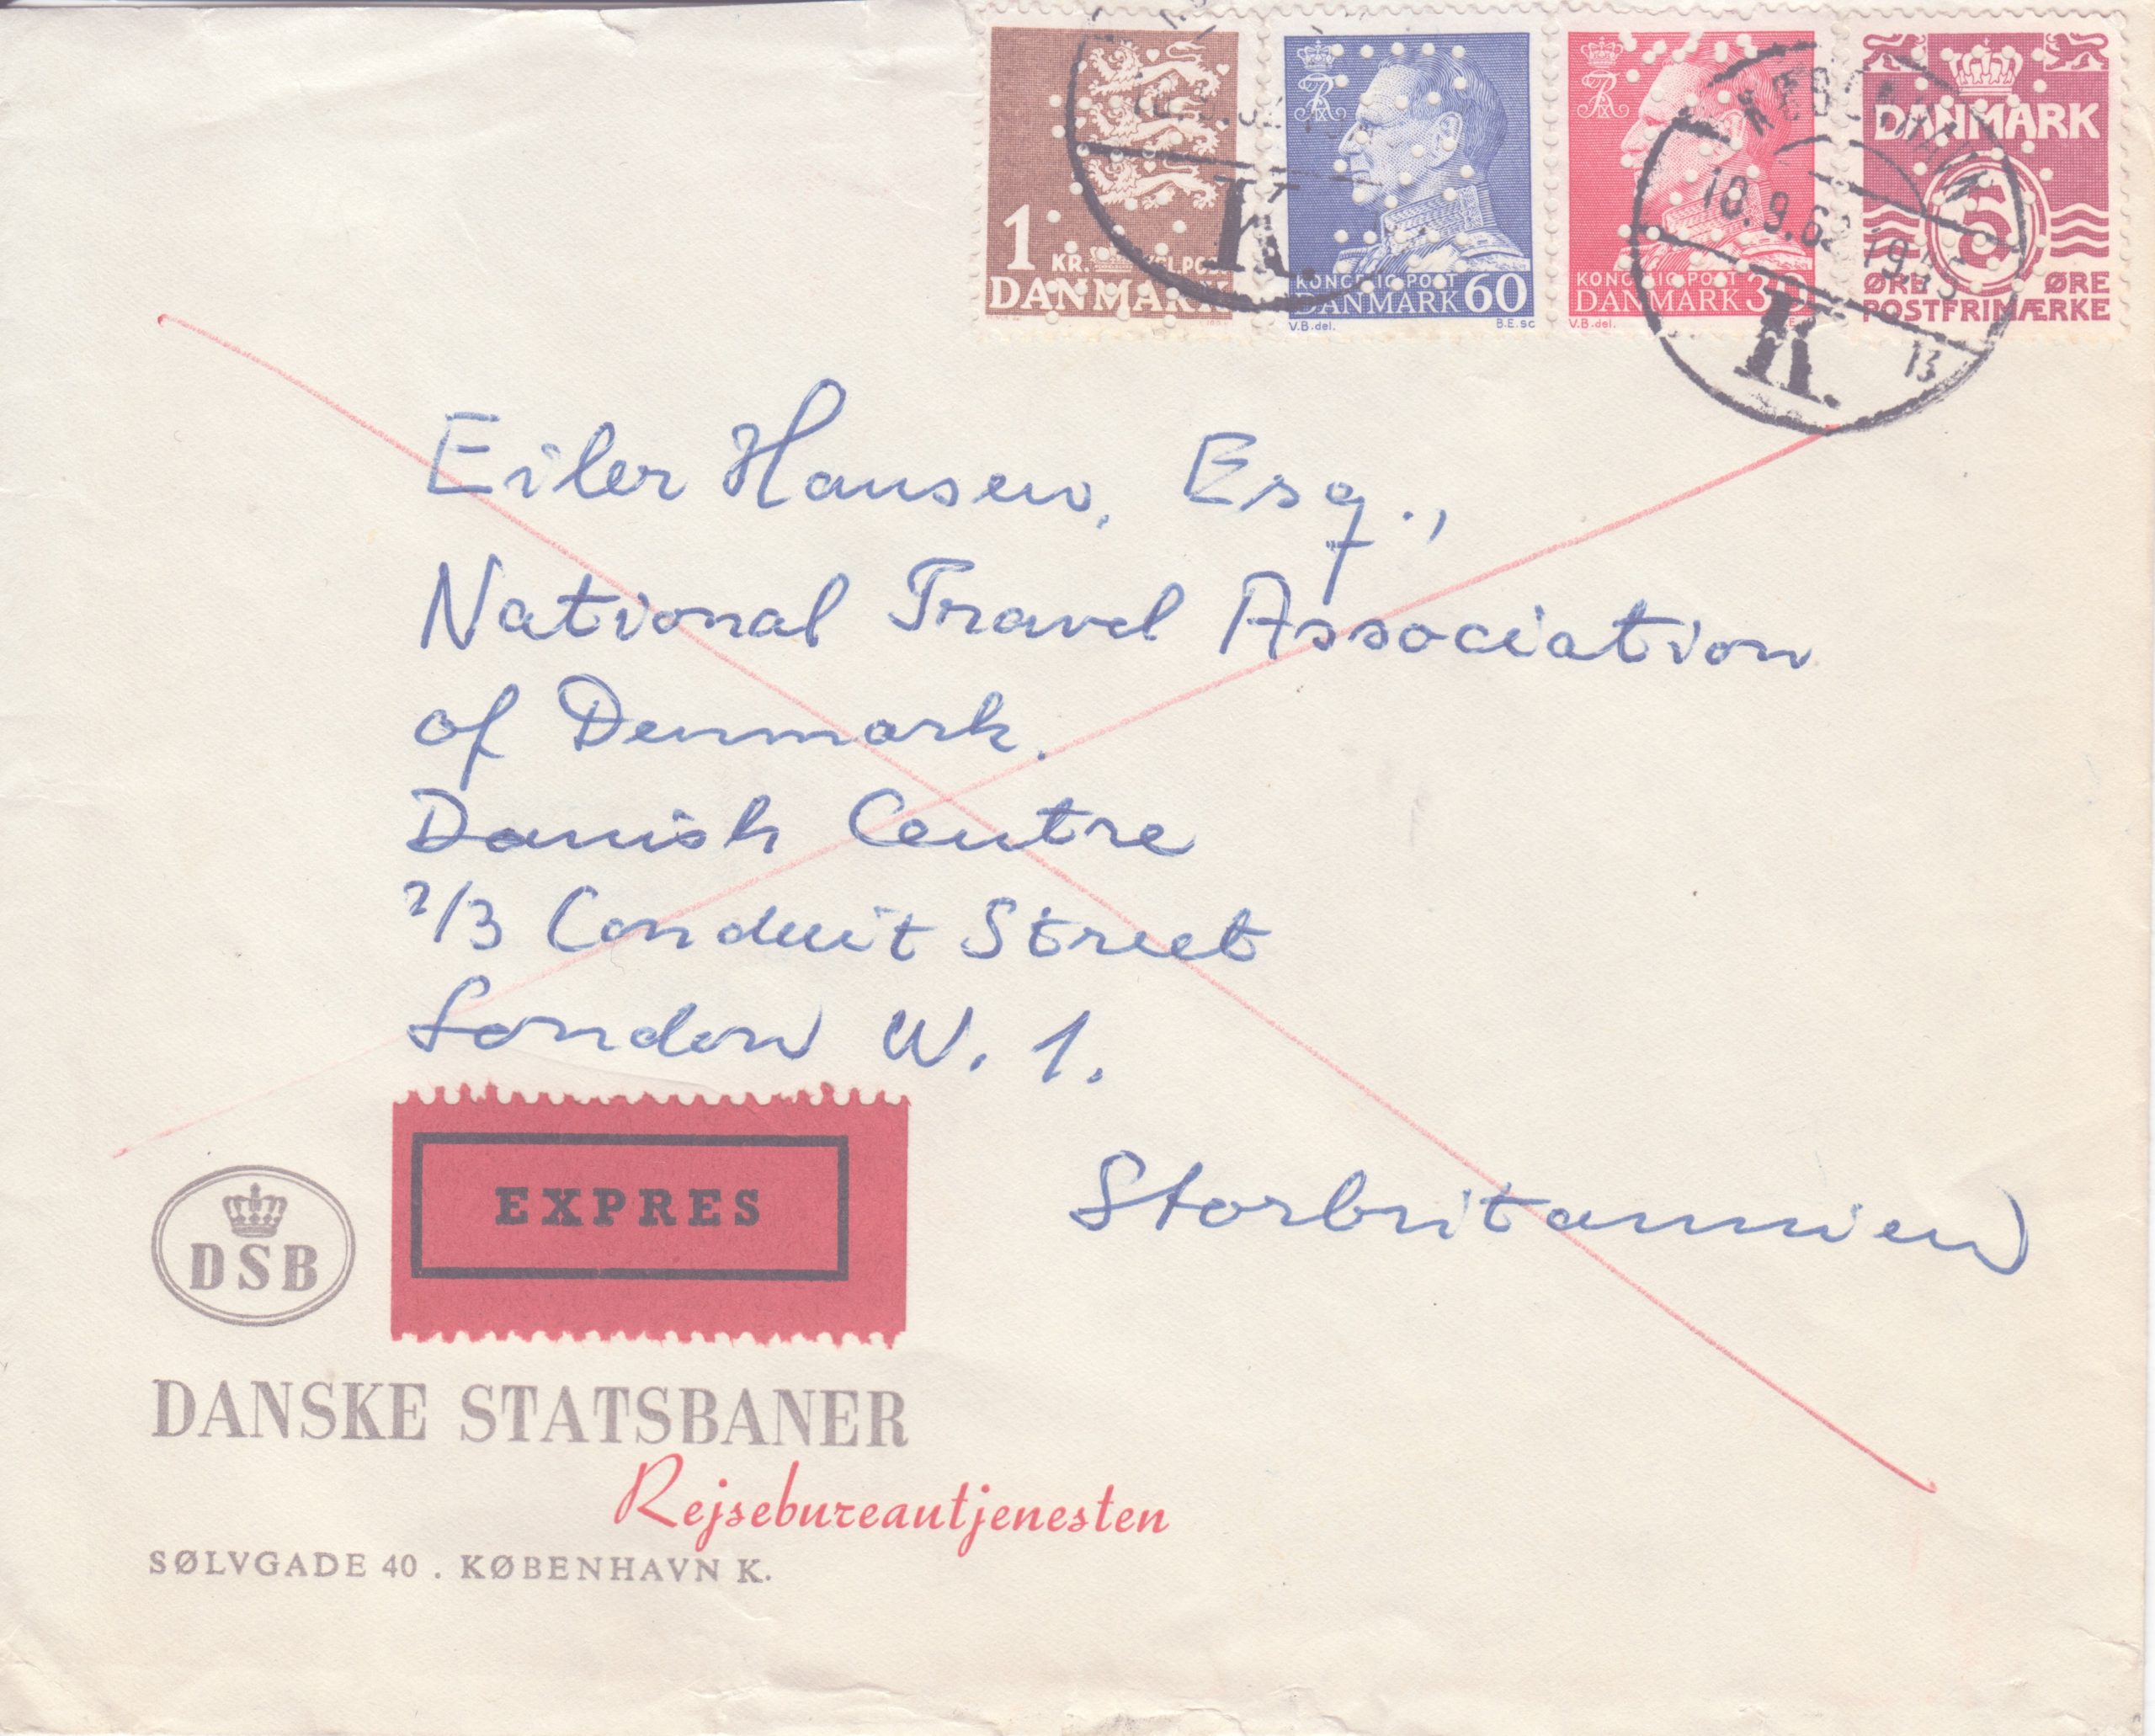 1
KR.
DANMARK
KONGELIG POST
DANMARK 60
V.B.del. B.E.sc
KONGELIG POST
DANMARK
V.B.del.
DANMARK
5
ØRE ØRE
POSTFRIMÆRKE
K.
KØBENHAVN
18.9.62 19
K. 13
Eiler Hansen, Esq.,
National Travel Association
of Denmark.
Danish Centre
2/3 Conduit Street
London W. 1.
Storbritannien
EXPRES
DSB
DANSKE STATSBANER
Rejsebureautjenesten
SØLVGADE 40 . KØBENHAVN K.